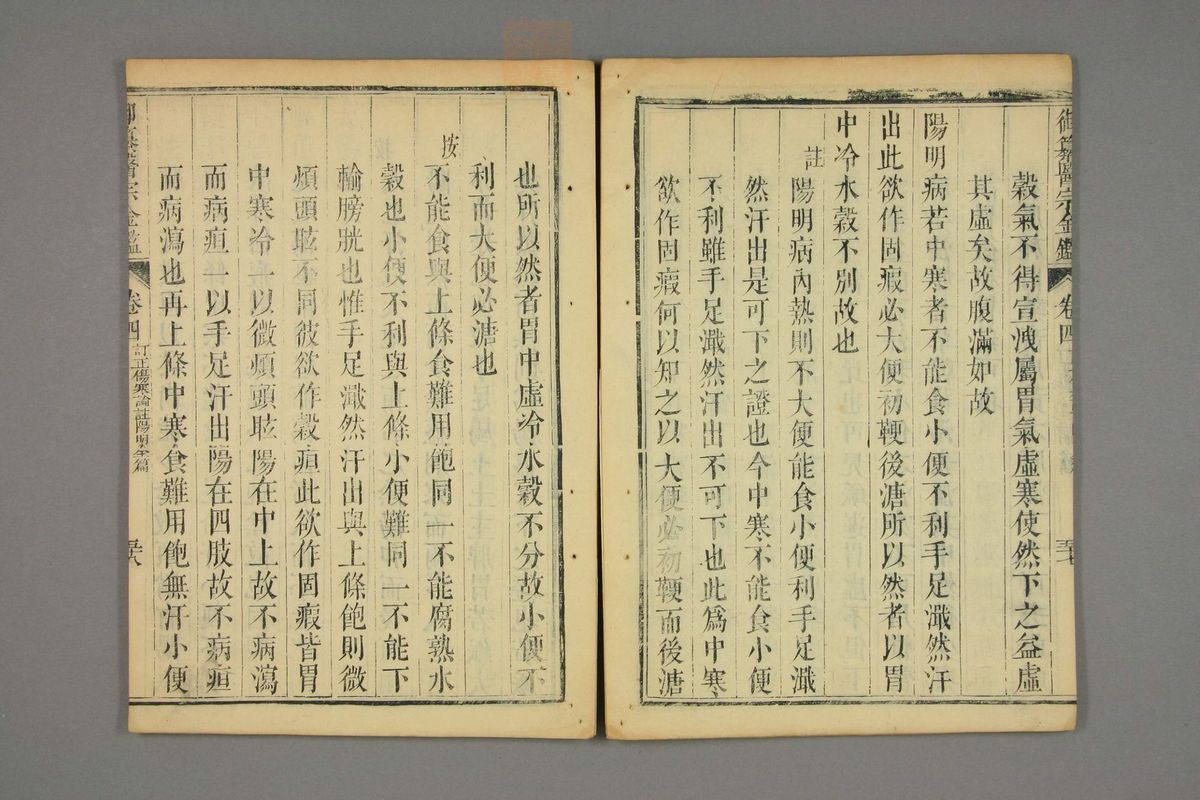 御纂醫宗金鑑
卷四
穀氣不得宣洩屬胃氣虛寒使然下之益虛
其虛矣故腹滿如故
陽明病若中寒者不能食小便不利手足濈然汗
出此欲作固瘕必大便初鞕後溏所以然者以胃
中冷水穀不別故也
註
陽明病內熱則不大便能食小便利手足濈
然汗出是可下之證也今中寒不能食小便
不利雖手足濈然汗出不可下也此爲中寒
欲作固瘕何以知之以大便必初鞕而後溏
也所以然者胃中虛冷水穀不分故小便不
利而大便必溏也
按
不能食與上條食難用飽同一不能腐熟水
穀也小便不利與上條小便難同一不能下
輸膀胱也惟手足濈然汗出與上條飽則微
煩頭眩不同彼欲作穀疸此欲作固瘕皆胃
中寒冷一以微煩頭眩陽在中上故不病瀉
而病疸一以手足汗出陽在四肢故不病疸
而病瀉也再上條中寒食難用飽無汗小便
御纂醫宗金鑑
卷四
訂正傷寒論註陽明全篇